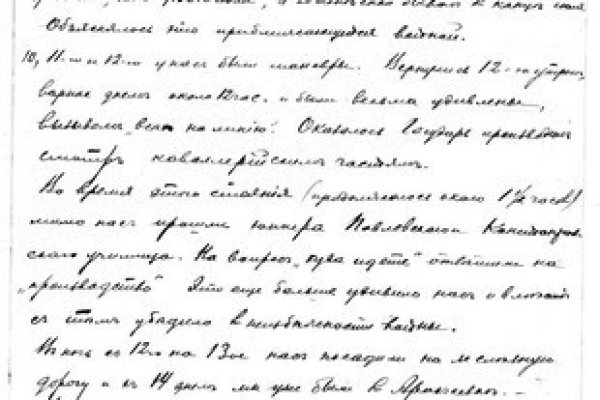 Объяснялось это приближающейся войной.
10, 11-го и 12-го у нас были маневры. Вернулись 12-го утром,
вернее днем около 12 час. и были весьма удивлены,
вызовом "всех на линию". Оказалось Государь производил
смотр кавалерийским частям.
Во время этого стояния (продолжалось около 1½ часов)
мимо нас прошли юнкера Павловского
училища. На вопрос "куда идете" ответили на
"производство" Это еще больше удивило нас и
с этим убедило в неизбежности войны.
В ночь с 12го на 13ое нас посадили на железную
дорогу и 14 днем мы уже были в